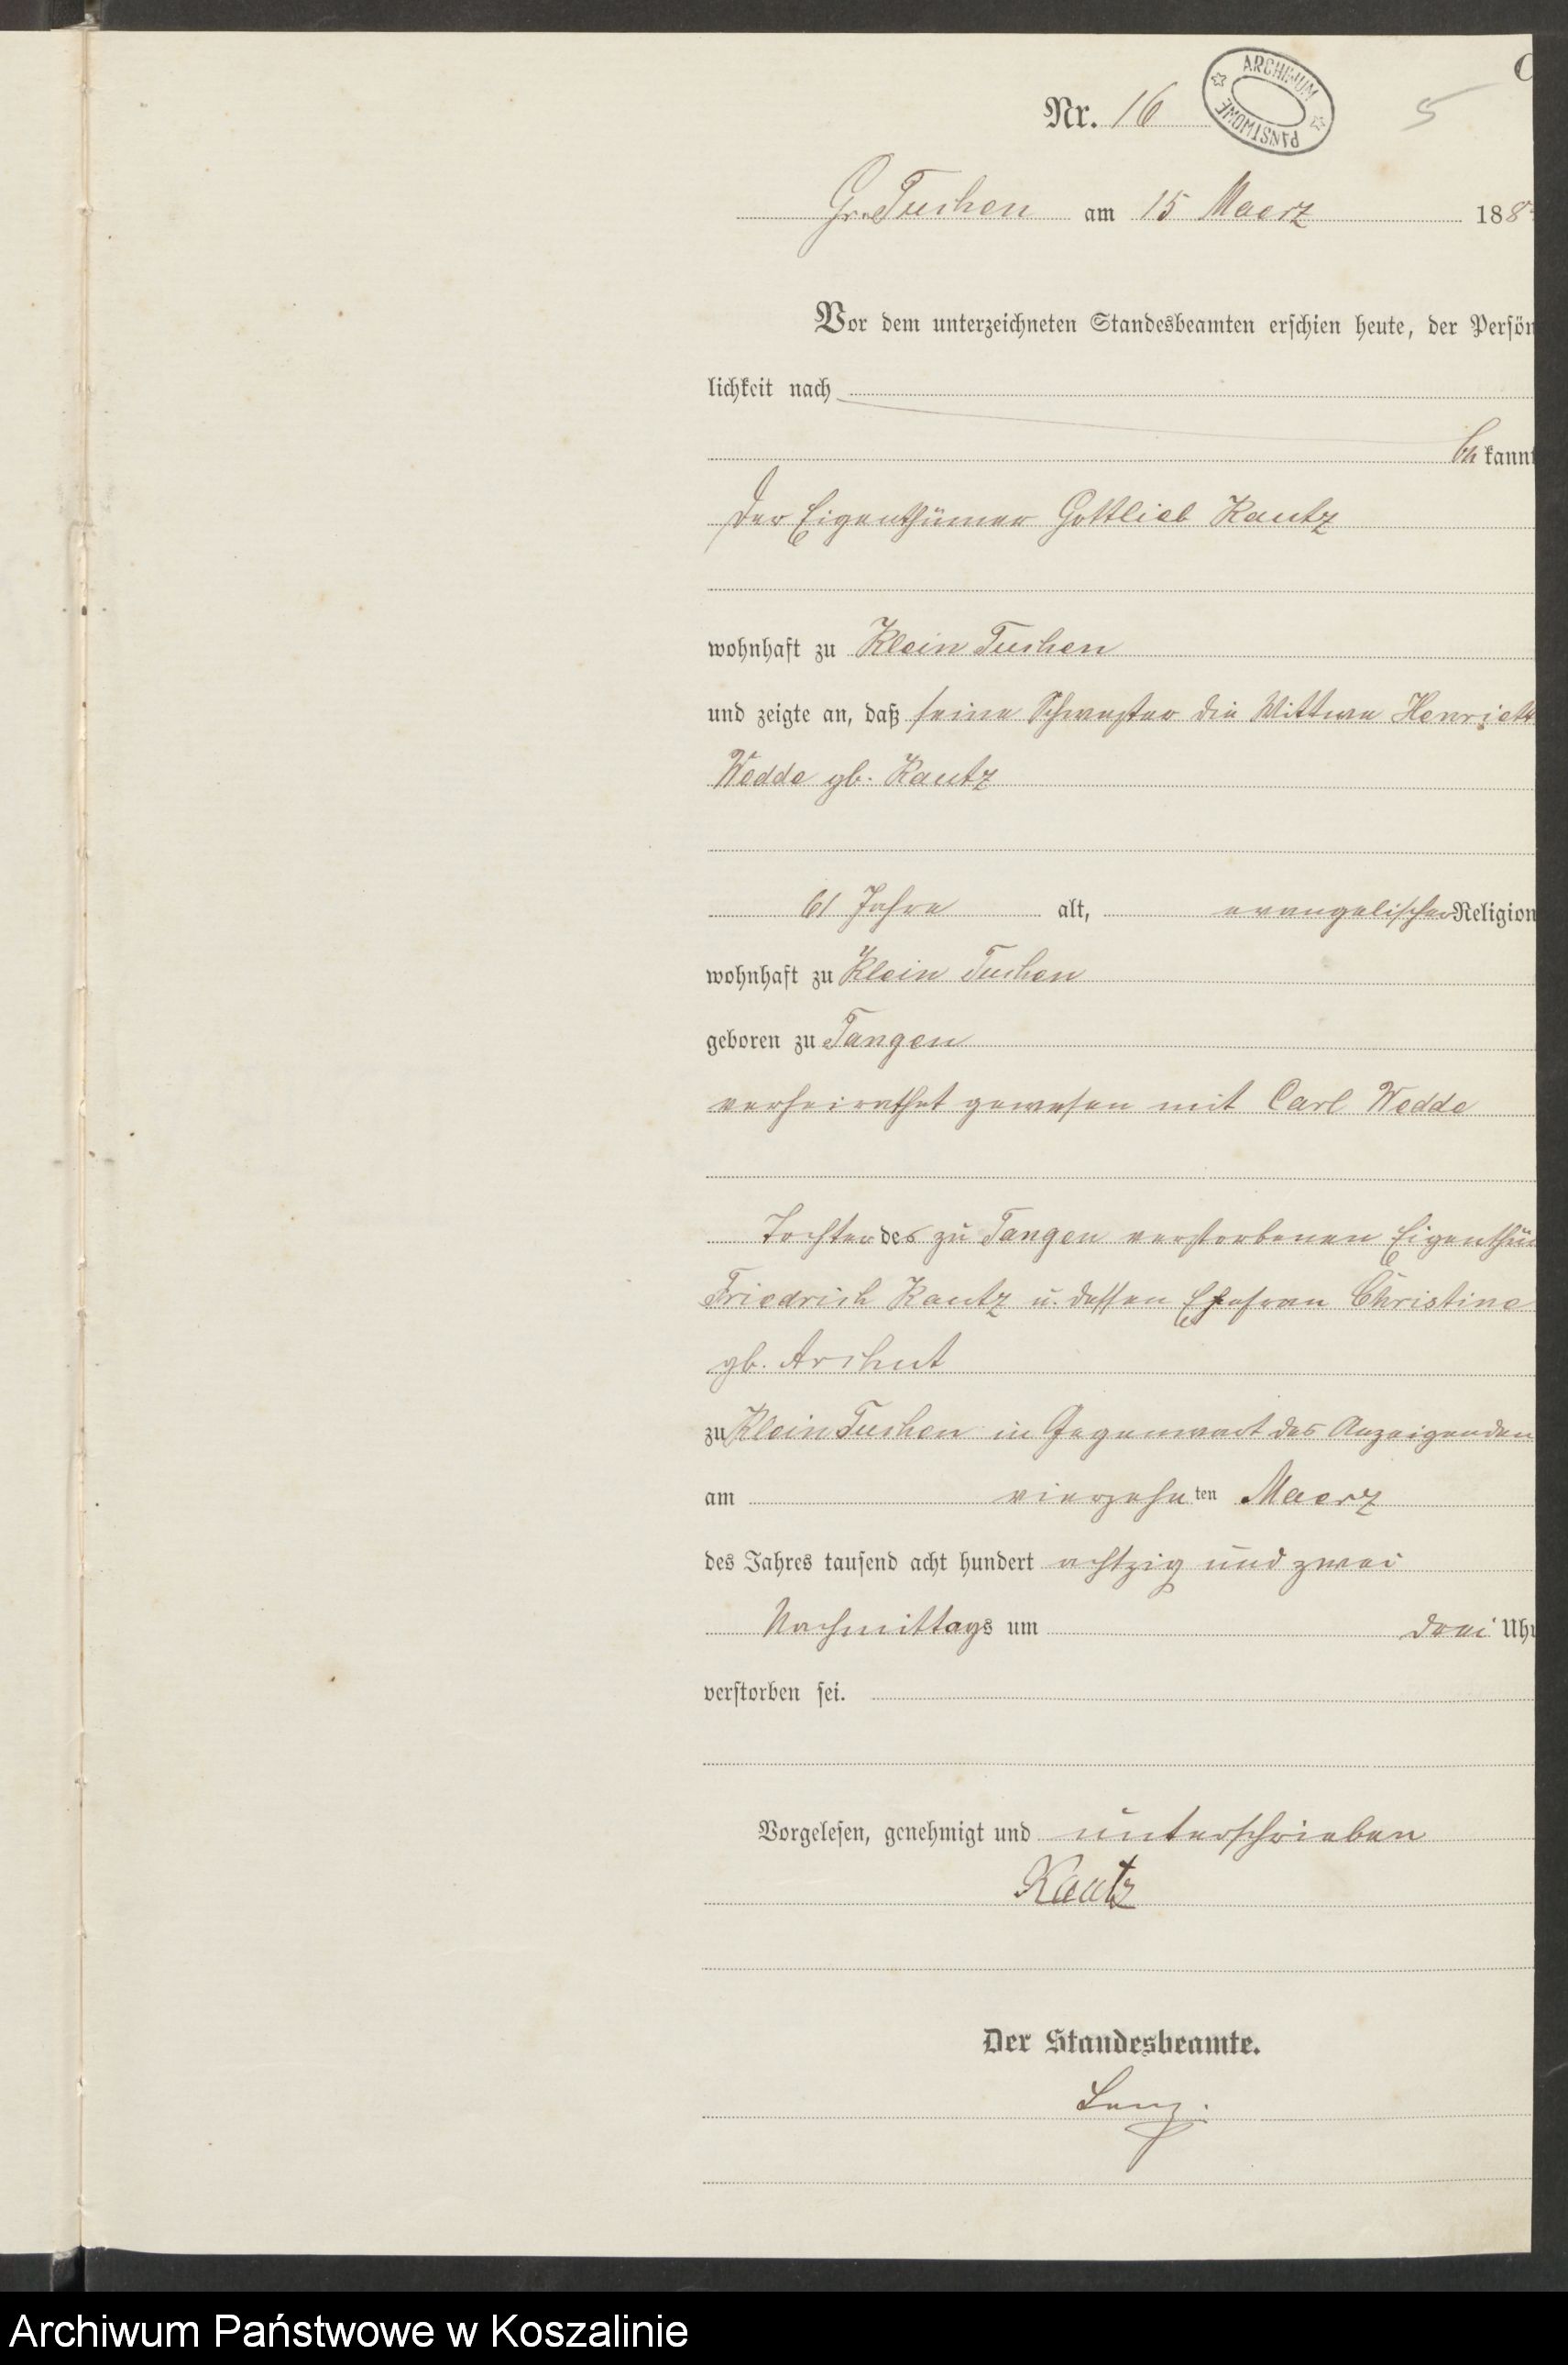 C
Nr. 16
ARCHIWUM PAŃSTWOWE
5
Gr. Tuchen am 15 Maerz 188
Vor dem unterzeichneten Standesbeamten erschien heute, der Persön
lichkeit nach
be kannt
der Eigenthümer Gottlieb Kautz
wohnhaft zu Klein Tuchen
und zeigte an, daß seine Schwester die Wittwe Henriett
Wedde gb. Kautz
61 Jahre alt, evangelischer Religion
wohnhaft zu Klein Tuchen
geboren zu Tangen
verheirathet gewesen mit Carl Wedde
Tochter des zu Tangen verstorbenen Eigenthü
Friedrich Kautz u. dessen Ehefrau Christine
gb. Archut
zu Klein Tuchen in Gegenwart des Anzeigenden
am vierzehn ten Maerz
des Jahres tausend acht hundert achtzig und zwei
Nachmittags um drei Uhr
verstorben sei.
Vorgelesen, genehmigt und unterschrieben
Kautz
Der Standesbeamte.
Archiwum Państwowe w Koszalinie